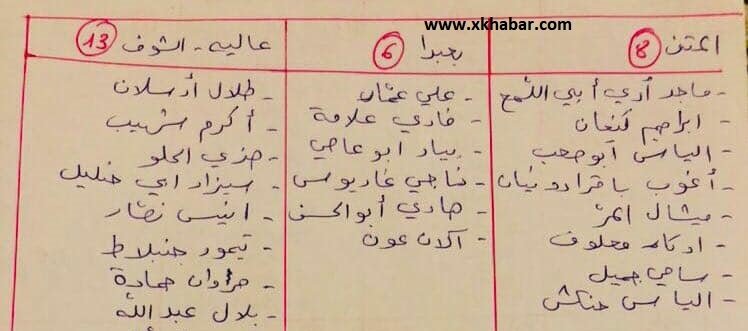 www.xkhabar.com
المتن 8
- ماجد إدي أبي اللمع
- ابراهيم كنعان
- الياس أبو صعب
- أغوب باقرادونيان
- ميشال المرّ
- ادكار معلوف
- سامي جميل
- الياس حنكش
بعبدا 6
- علي عمّار
- فادي علامة
- بيار ابو عاصي
- ناجي غاريوس
- هادي أبو الحسن
- آلان عون
عاليه - الشوف 13
- طلال أرسلان
- أكرم شهيب
- سيزار ابي خليل
- انيس نصّار
- تيمور جنبلاط
- مروان حمادة
- بلال عبدالله